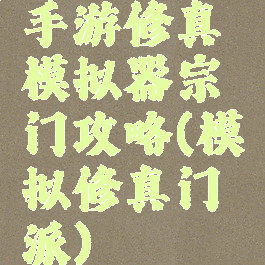 手游修真
模拟器宗
门攻略(模
拟修真门
派)